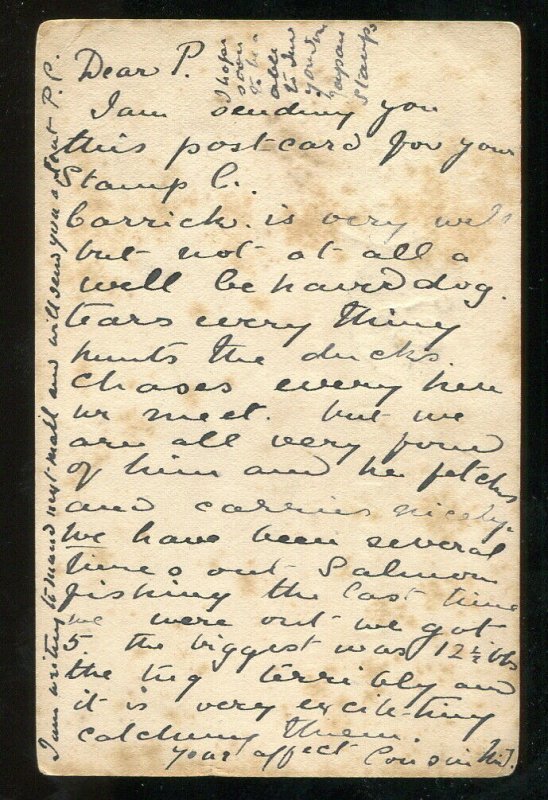 Dear P.
I am sending you
this postcard for your
Stamp C.
Carrick is very well
but not at all a
well behaved dog.
tears every thing
hunts the ducks.
chases every hen
we meet. but we
are all very fond
of him and he fetches
and carries nicely.
We have been several
times out Salmon
fishing the last time
we were out we got
5. the biggest was 12½ lbs
the tug terribly and
it is very exciting
catching them.
your affect Cousin
I hope
soon
to be
able
to send
you
Japan
Stamps
I am writing to next mail and will send you a P.C.